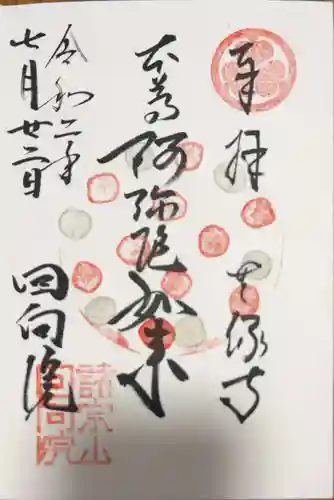 奉拝
無縁寺
本尊阿弥陀如来
令和二年
七月廿二日
回向院
諸宗山
回向院